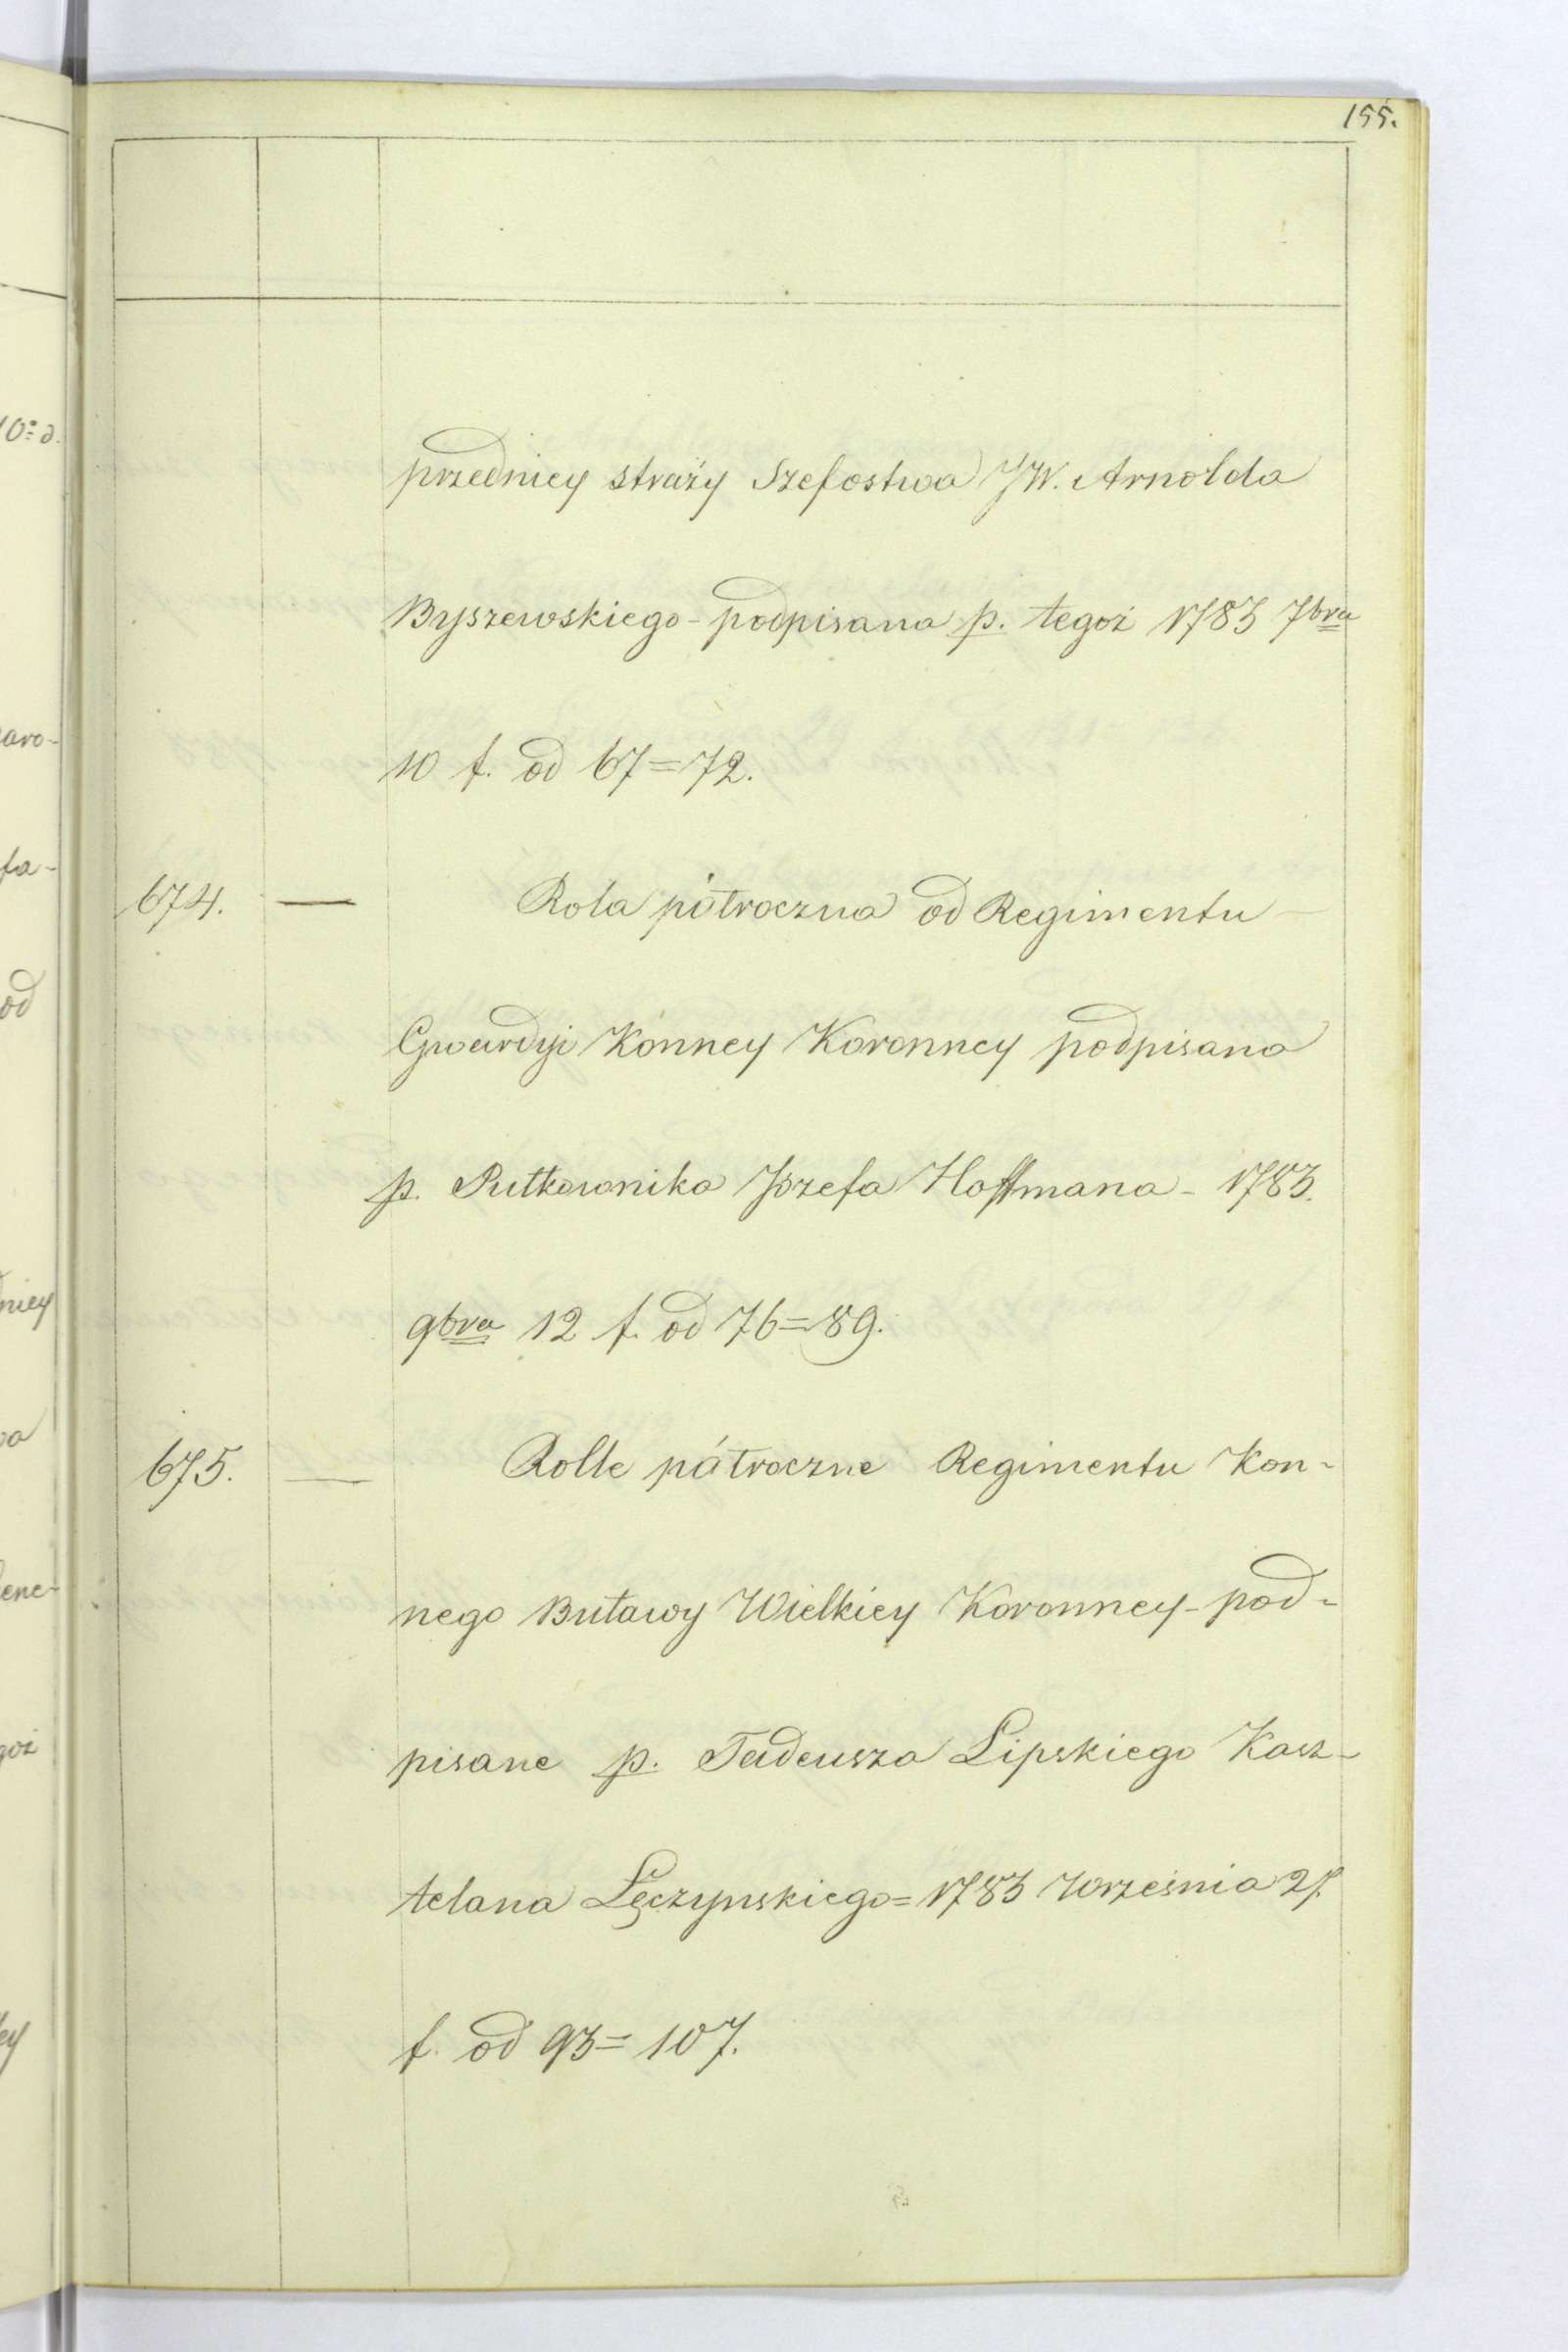 155.
przedniey straży Szefostwa JW. Arnolda
Byszewskiego - podpisana p. tegoż 1783 7bra
10 f. od 67=72.
674. — Rola półroczna od Regimentu
Gwardyi Konney Koronney podpisana
p. Pułkownika Józefa Hoffmana - 1783.
9bra 12 f. od 76=89.
675. — Rolle półroczne Regimentu Kon-
nego Buławy Wielkiey Koronney - pod-
pisane p. Tadeusza Lipskiego Kasz-
telana Łęczynskiego = 1783 Września 27.
f. od 93=107.